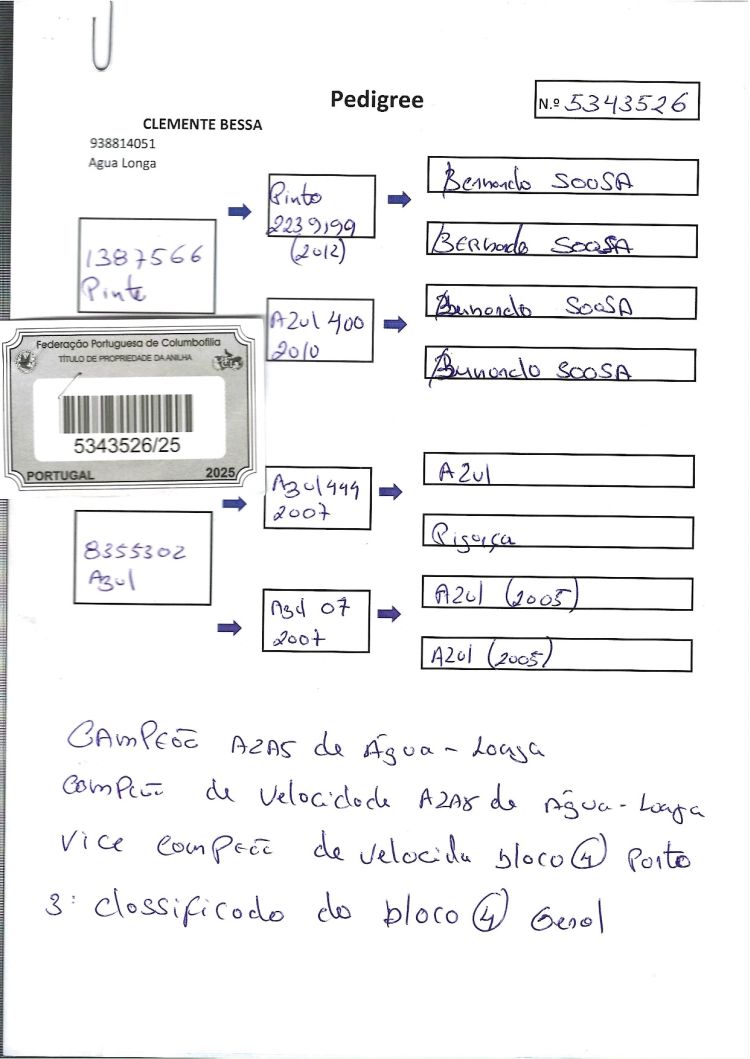 Pedigree
N.º 5343526
CLEMENTE BESSA
938814051
Agua Longa
1387566
Pinto
Pinto
2239,99
(2012)
Bernardo SOOSA
BERNardo SOOSA
Azul 400
2010
Bernardo SOOSA
Bernardo SOOSA
Federação Portuguesa de Columbofilia
TÍTULO DE PROPRIEDADE DA ANILHA
5343526/25
PORTUGAL
2025
8355302
Azul
Azul 444
2007
Azul
Pigarça
Azul 07
2007
Azul (2005)
Azul (2005)
CAMPEÕE AZAS de Água-Longa
Compeõe de Velocidade AZAS de Água-Longa
Vice Compeõe de Velocida bloco 4 Porto
3º Classificado do bloco 4 Geral